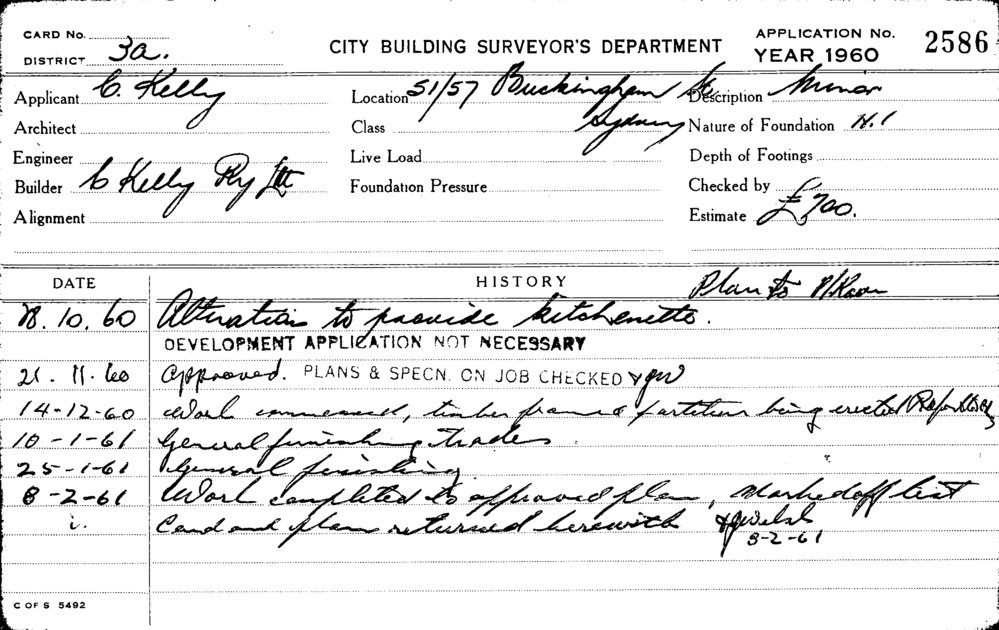 CARD No.
DISTRICT 3a.
CITY BUILDING SURVEYOR'S DEPARTMENT
APPLICATION No.
YEAR 1960
2586
Applicant C. Kelly
Location 51/57 Buckingham St
Sydney
Description Minor
Architect
Class
Nature of Foundation N.1
Engineer
Live Load
Depth of Footings
Builder C Kelly Pty Ltd
Foundation Pressure
Checked by
Alignment
Estimate £700.
DATE
HISTORY
Plan to P/Room
.10.60 Alterations to provide kitchenette.
DEVELOPMENT APPLICATION NOT NECESSARY
21.11.60 Approved. PLANS & SPECN. ON JOB CHECKED
14-12-60 Work commenced, timber framed partitions being erected
10-1-61 General finishing trades
25-1-61 General finishing
8-2-61 Work completed to approved plan, Marked off list
Card and plan returned herewith
8-2-61
C OF S 5492